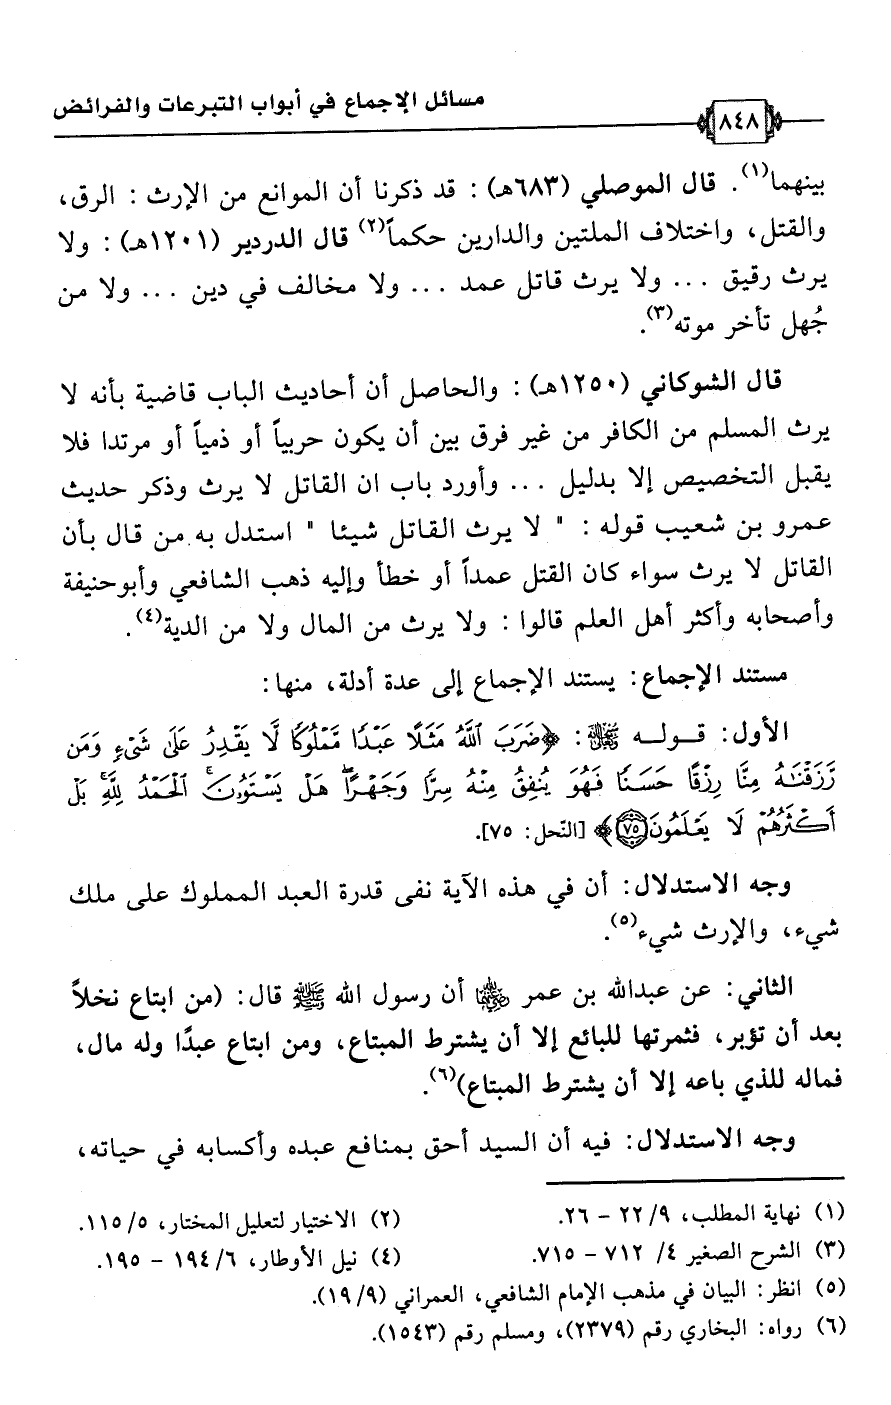 مسائل الإجماع في أبواب التبرعات والفرائض
٨٤٨
بينهما(١). قال الموصلي (٦٨٣هـ) : قد ذكرنا أن الموانع من الإرث : الرق،
والقتل، واختلاف الملتين والدارين حكماً(٢) قال الدردير (١٢٠١هـ) : ولا
يرث رقيق ... ولا يرث قاتل عمد ... ولا مخالف في دين ... ولا من
جُهل تأخر موته(٣).
قال الشوكاني (١٢٥٠هـ) : والحاصل أن أحاديث الباب قاضية بأنه لا
يرث المسلم من الكافر من غير فرق بين أن يكون حربياً أو ذمياً أو مرتدا فلا
يقبل التخصيص إلا بدليل ... وأورد باب ان القاتل لا يرث وذكر حديث
عمرو بن شعيب قوله : " لا يرث القاتل شيئا " استدل به من قال بأن
القاتل لا يرث سواء كان القتل عمداً أو خطأ وإليه ذهب الشافعي وأبوحنيفة
وأصحابه وأكثر أهل العلم قالوا : ولا يرث من المال ولا من الدية(٤).
مستند الإجماع: يستند الإجماع إلى عدة أدلة، منها:
الأول: قـولـه ﷺ: ﴿ضَرَبَ ٱللَّهُ مَثَلًا عَبْدًا مَّمْلُوكًا لَّا يَقْدِرُ عَلَىٰ شَىْءٍ وَمَن
رَّزَقْنَٰهُ مِنَّا رِزْقًا حَسَنًا فَهُوَ يُنفِقُ مِنْهُ سِرًّا وَجَهْرًا ۖ هَلْ يَسْتَوُۥنَ ۚ ٱلْحَمْدُ لِلَّهِ ۚ بَلْ
أَكْثَرُهُمْ لَا يَعْلَمُونَ ٧٥﴾ [النّحل: ٧٥].
وجه الاستدلال: أن في هذه الآية نفى قدرة العبد المملوك على ملك
شيء، والإرث شيء(٥).
الثاني: عن عبدالله بن عمر رضي الله عنهما أن رسول الله ﷺ قال: (من ابتاع نخلاً
بعد أن تؤبر، فثمرتها للبائع إلا أن يشترط المبتاع، ومن ابتاع عبدًا وله مال،
فماله للذي باعه إلا أن يشترط المبتاع)(٦).
وجه الاستدلال: فيه أن السيد أحق بمنافع عبده وأكسابه في حياته،
(١) نهاية المطلب، ٩/ ٢٢ - ٢٦.
(٢) الاختيار لتعليل المختار، ٥/ ١١٥.
(٣) الشرح الصغير ٤/ ٧١٢ - ٧١٥.
(٤) نيل الأوطار، ٦/ ١٩٤ - ١٩٥.
(٥) انظر: البيان في مذهب الإمام الشافعي، العمراني (٩/ ١٩).
(٦) رواه: البخاري رقم (٢٣٧٩)، ومسلم رقم (١٥٤٣).